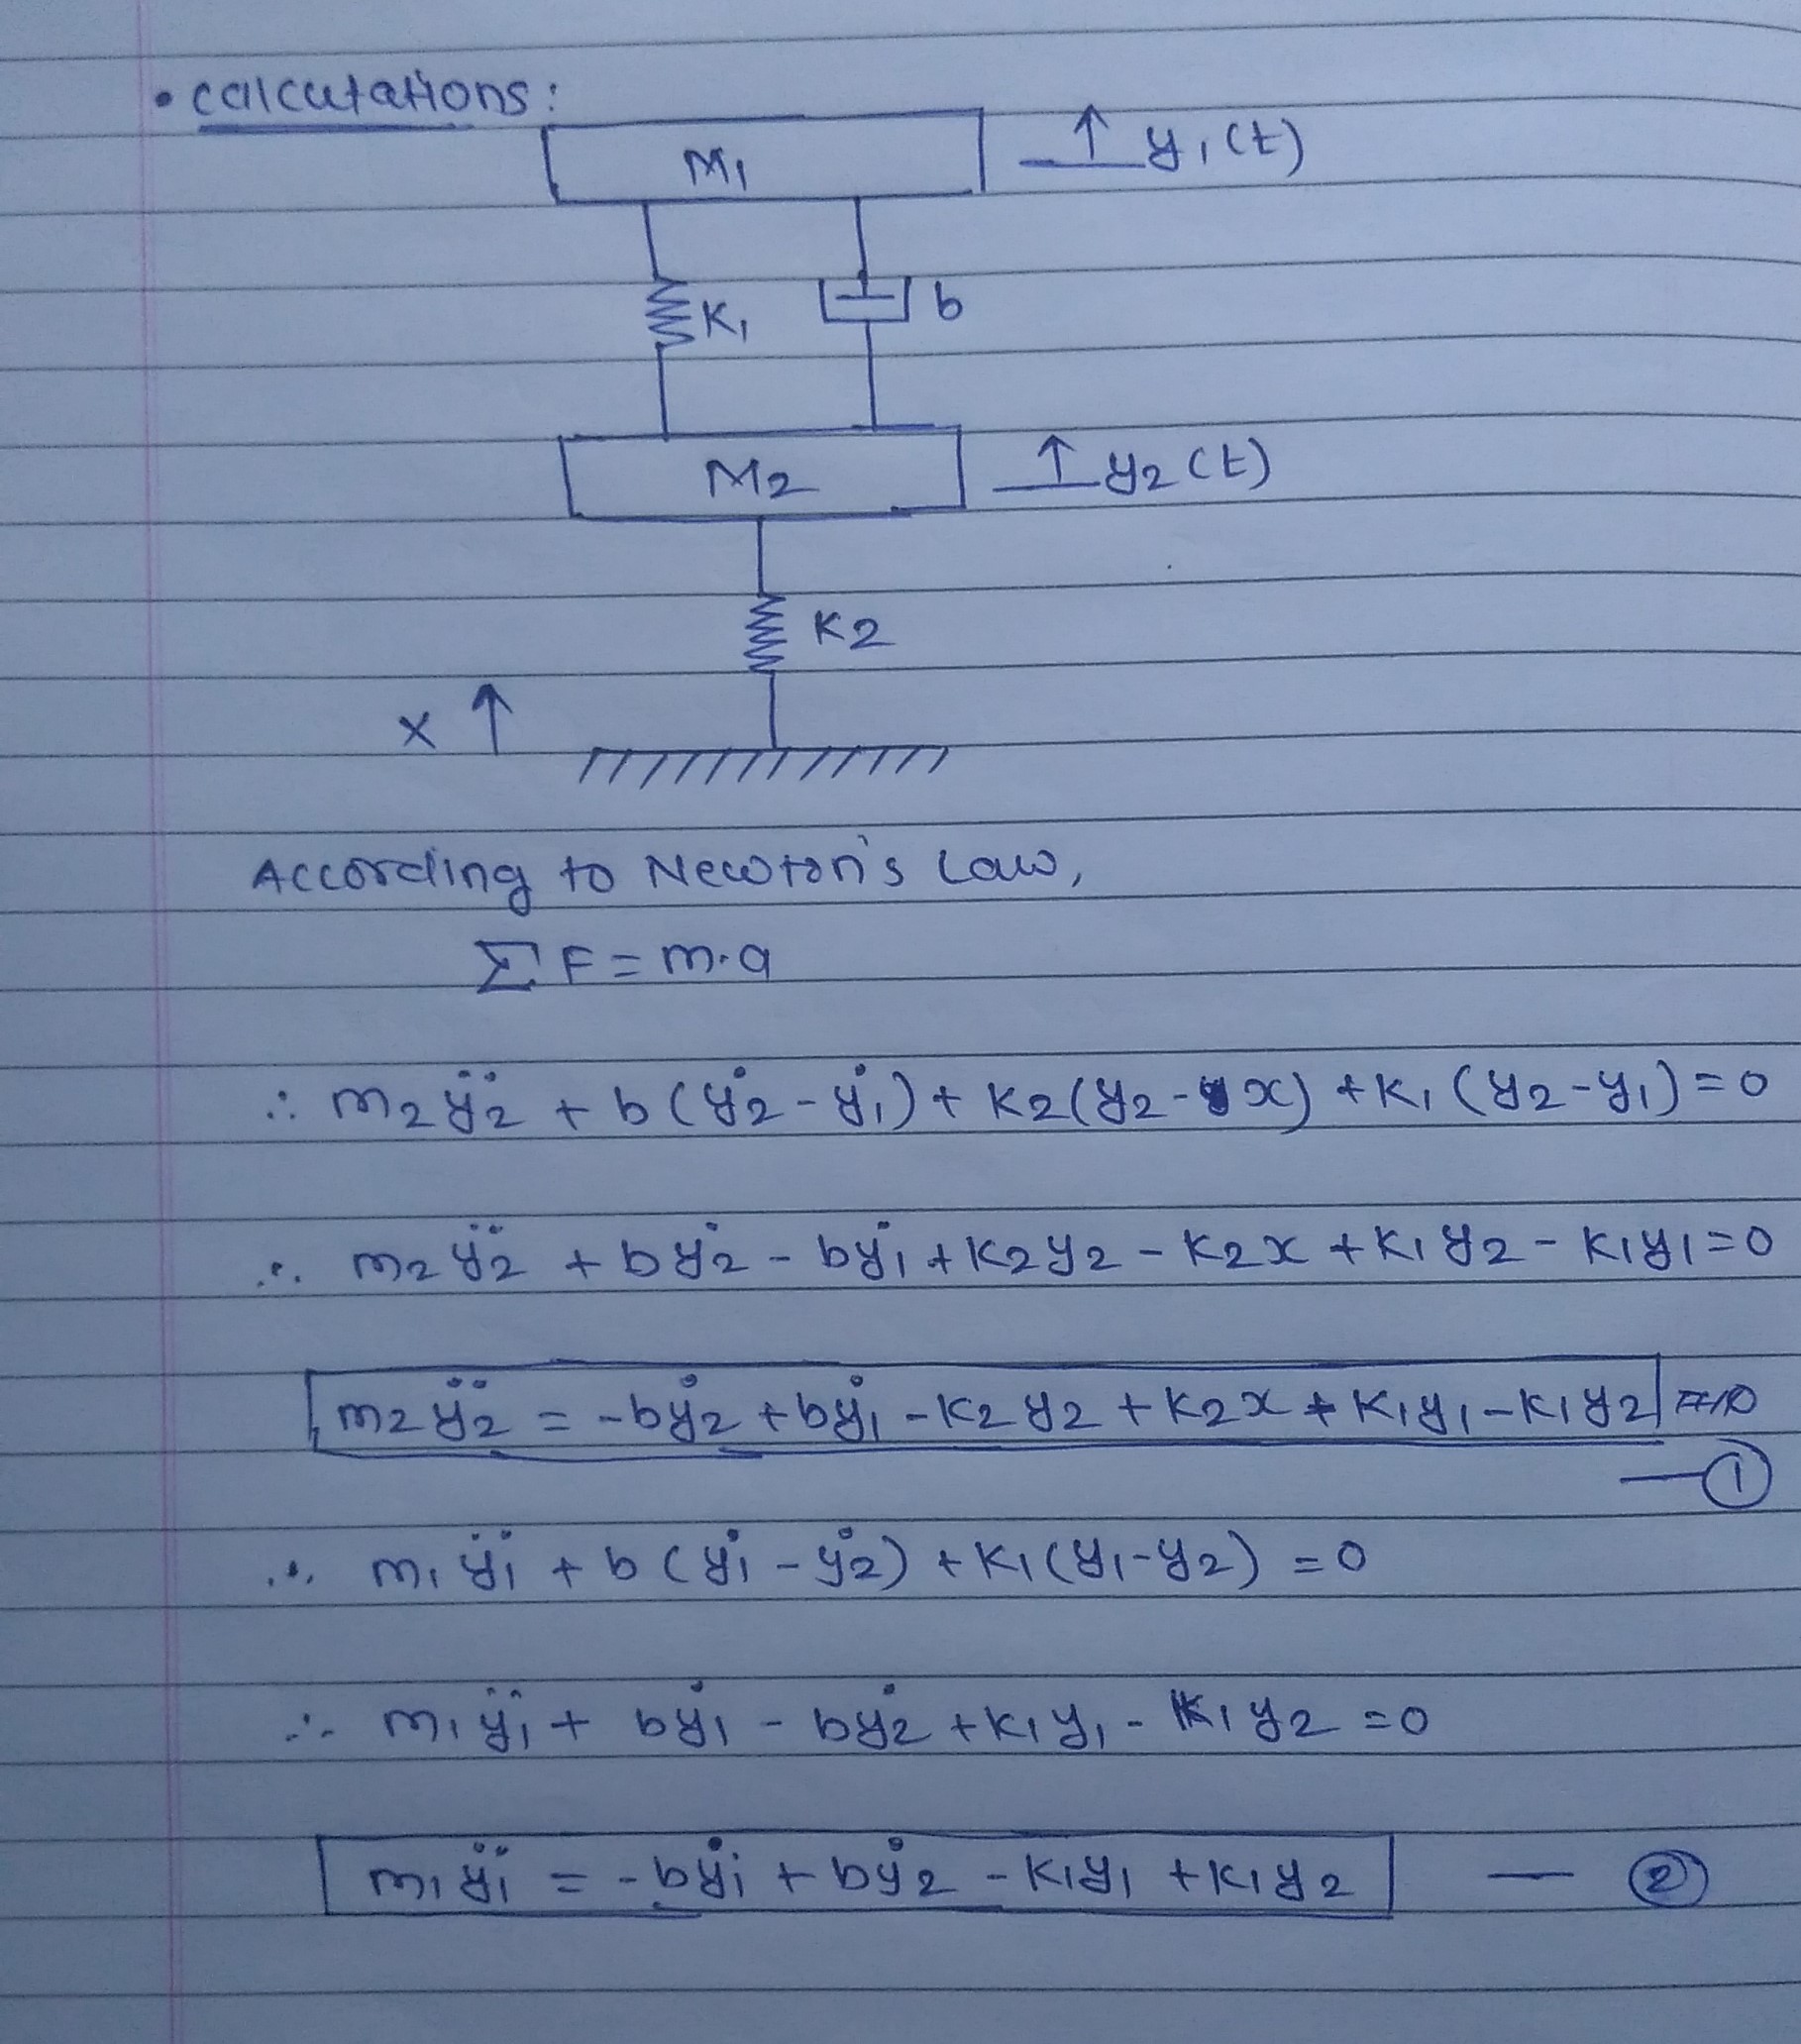 • calculations:
M1 ↑ y1(t)
K1 b
M2 ↑ y2(t)
K2
x ↑
According to Newton's Law,
ΣF = m.a
∴ m2ÿ2 + b(ẏ2 - ẏ1) + K2(y2 - x) + K1(y2 - y1) = 0
∴ m2ÿ2 + bẏ2 - bẏ1 + K2y2 - K2x + K1y2 - K1y1 = 0
m2ÿ2 = -bẏ2 + bẏ1 - K2y2 + K2x + K1y1 - K1y2
— ①
∴ m1ÿ1 + b(ẏ1 - ẏ2) + K1(y1 - y2) = 0
∴ m1ÿ1 + bẏ1 - bẏ2 + K1y1 - K1y2 = 0
m1ÿ1 = -bẏ1 + bẏ2 - K1y1 + K1y2 — ②